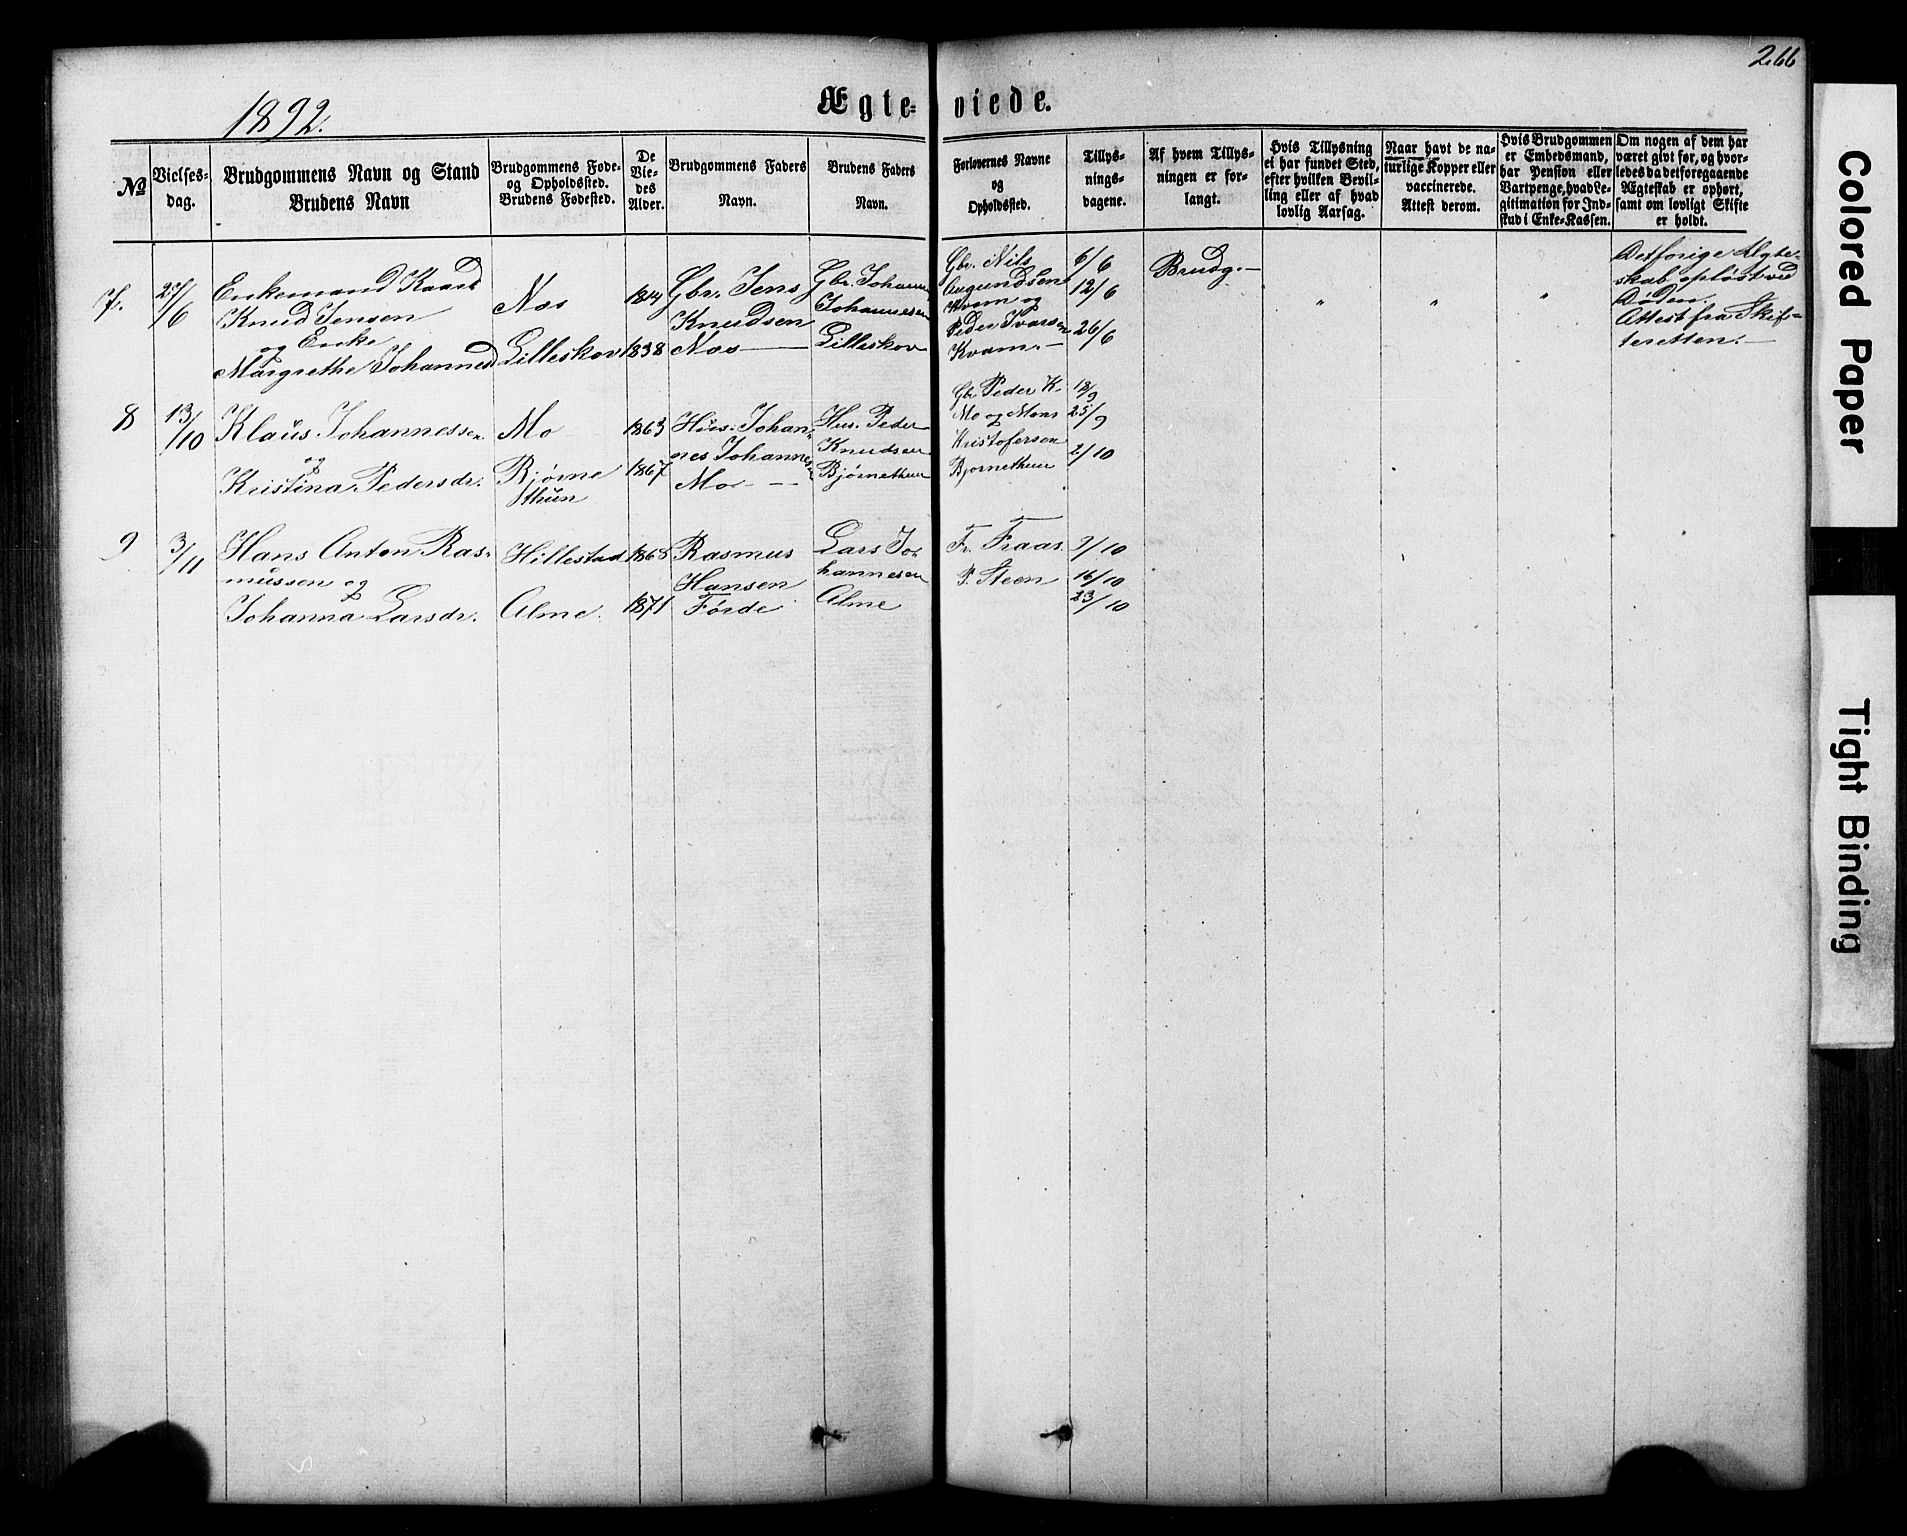 266
1892.
Ægteviede.
№
Vielses-
dag.
Brudgommens Navn og Stand
Brudens Navn
Brudgommens Føde-
og Opholdssted.
Brudens Fødested.
De
Vie-
des
Alder.
Brudgommens Faders
Navn.
Brudens Faders
Navn.
Forlovernes Navne
og
Opholdssted.
Tillys-
nings-
dagene.
Af hvem Tillys-
ningen er for-
langt.
Hvis Tillysning
ei har fundet Sted,
efter hvilken Bevil-
ling eller af hvad
lovlig Aarsag.
Naar havt de na-
turlige Kopper eller
vaccinerede.
Attest derom.
Hvis Brudgommen
er Embedsmand,
har Pension eller
Vartpenge, hvad Le-
gitimation for Ind-
skud i Enke-Kassen.
Om nogen af dem har
været givt før, og hvor-
ledes da det foregaaende
Ægteskab er ophørt,
samt om lovligt Skifte
er holdt.
7.
/6
Enkemand Kaard
Knud Jensen
og Enke
Margrethe Johannesd
Nos
Lilleskov
1814
1838
Gbr. Jens
Knudsen
Nos
Gbr. Johannes
Johannesen
Lilleskov
Gbr. Nils
Augundsen
Kvam og
Peder Ivarsen
Kvam.
6/6
12/6
26/6
Brudg.
"
"
"
Det forige Ægte-
skab opløst ved
Døden.
Attest fra Skif-
teretten.
8
13/10
Klaus Johannessen
og
Kristina Pedersdr.
Mo
Bjørne
thun
1863
1867
Hus. Johan-
nes Johannesen
Mo
Hus. Peder
Knudsen
Bjørnethun
Gbr Peder K.
Mo og Mons
Kristofersen
Bjornethun
18/9
25/9
2/10
9
3/11
Hans Anton Ras-
mussen og
Johanna Larsdr.
Hillestad
Alme.
1868
1871
Rasmus
Hansen
Førde
Lars Jo-
hannesen
Alme
Fr. Fraas.
P. Steen
9/10
16/10
23/10
Colored Paper
Tight Binding